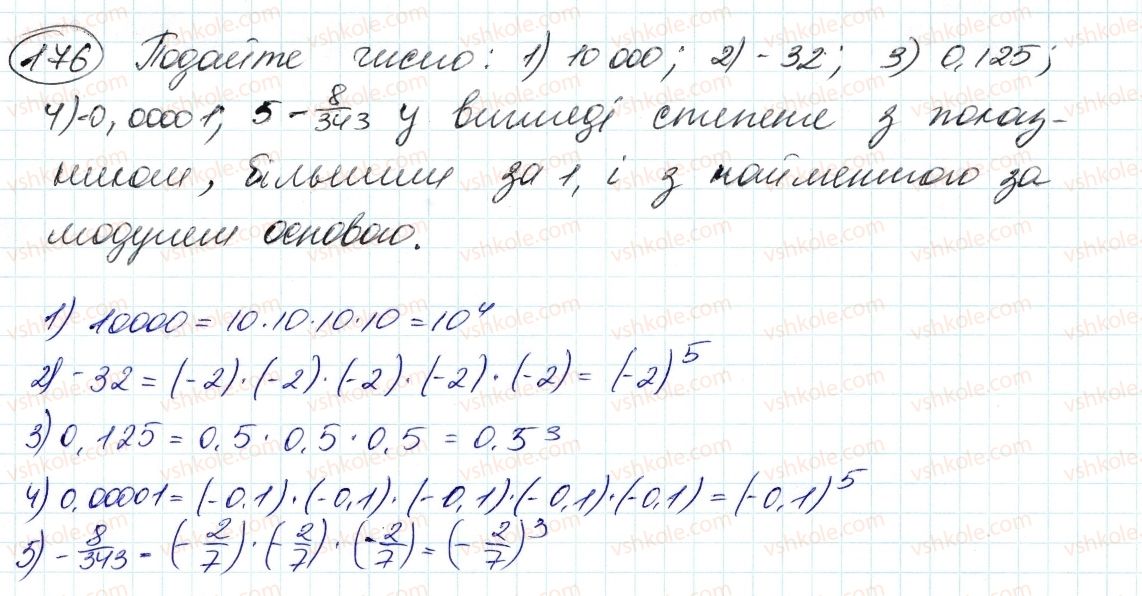 176 Подайте число: 1) 10 000; 2) -32; 3) 0,125;
4) -0,00001; 5 - 8/343 у вигляді степеня з показ-
ником, більшим за 1, і з найменшою за
модулем основою.
1) 10000 = 10·10·10·10 = 10⁴
2) -32 = (-2)·(-2)·(-2)·(-2)·(-2) = (-2)⁵
3) 0,125 = 0,5·0,5·0,5 = 0,5³
4) 0,00001 = (-0,1)·(-0,1)·(-0,1)·(-0,1)·(-0,1) = (-0,1)⁵
5) - 8/343 = (-2/7)·(-2/7)·(-2/7) = (-2/7)³